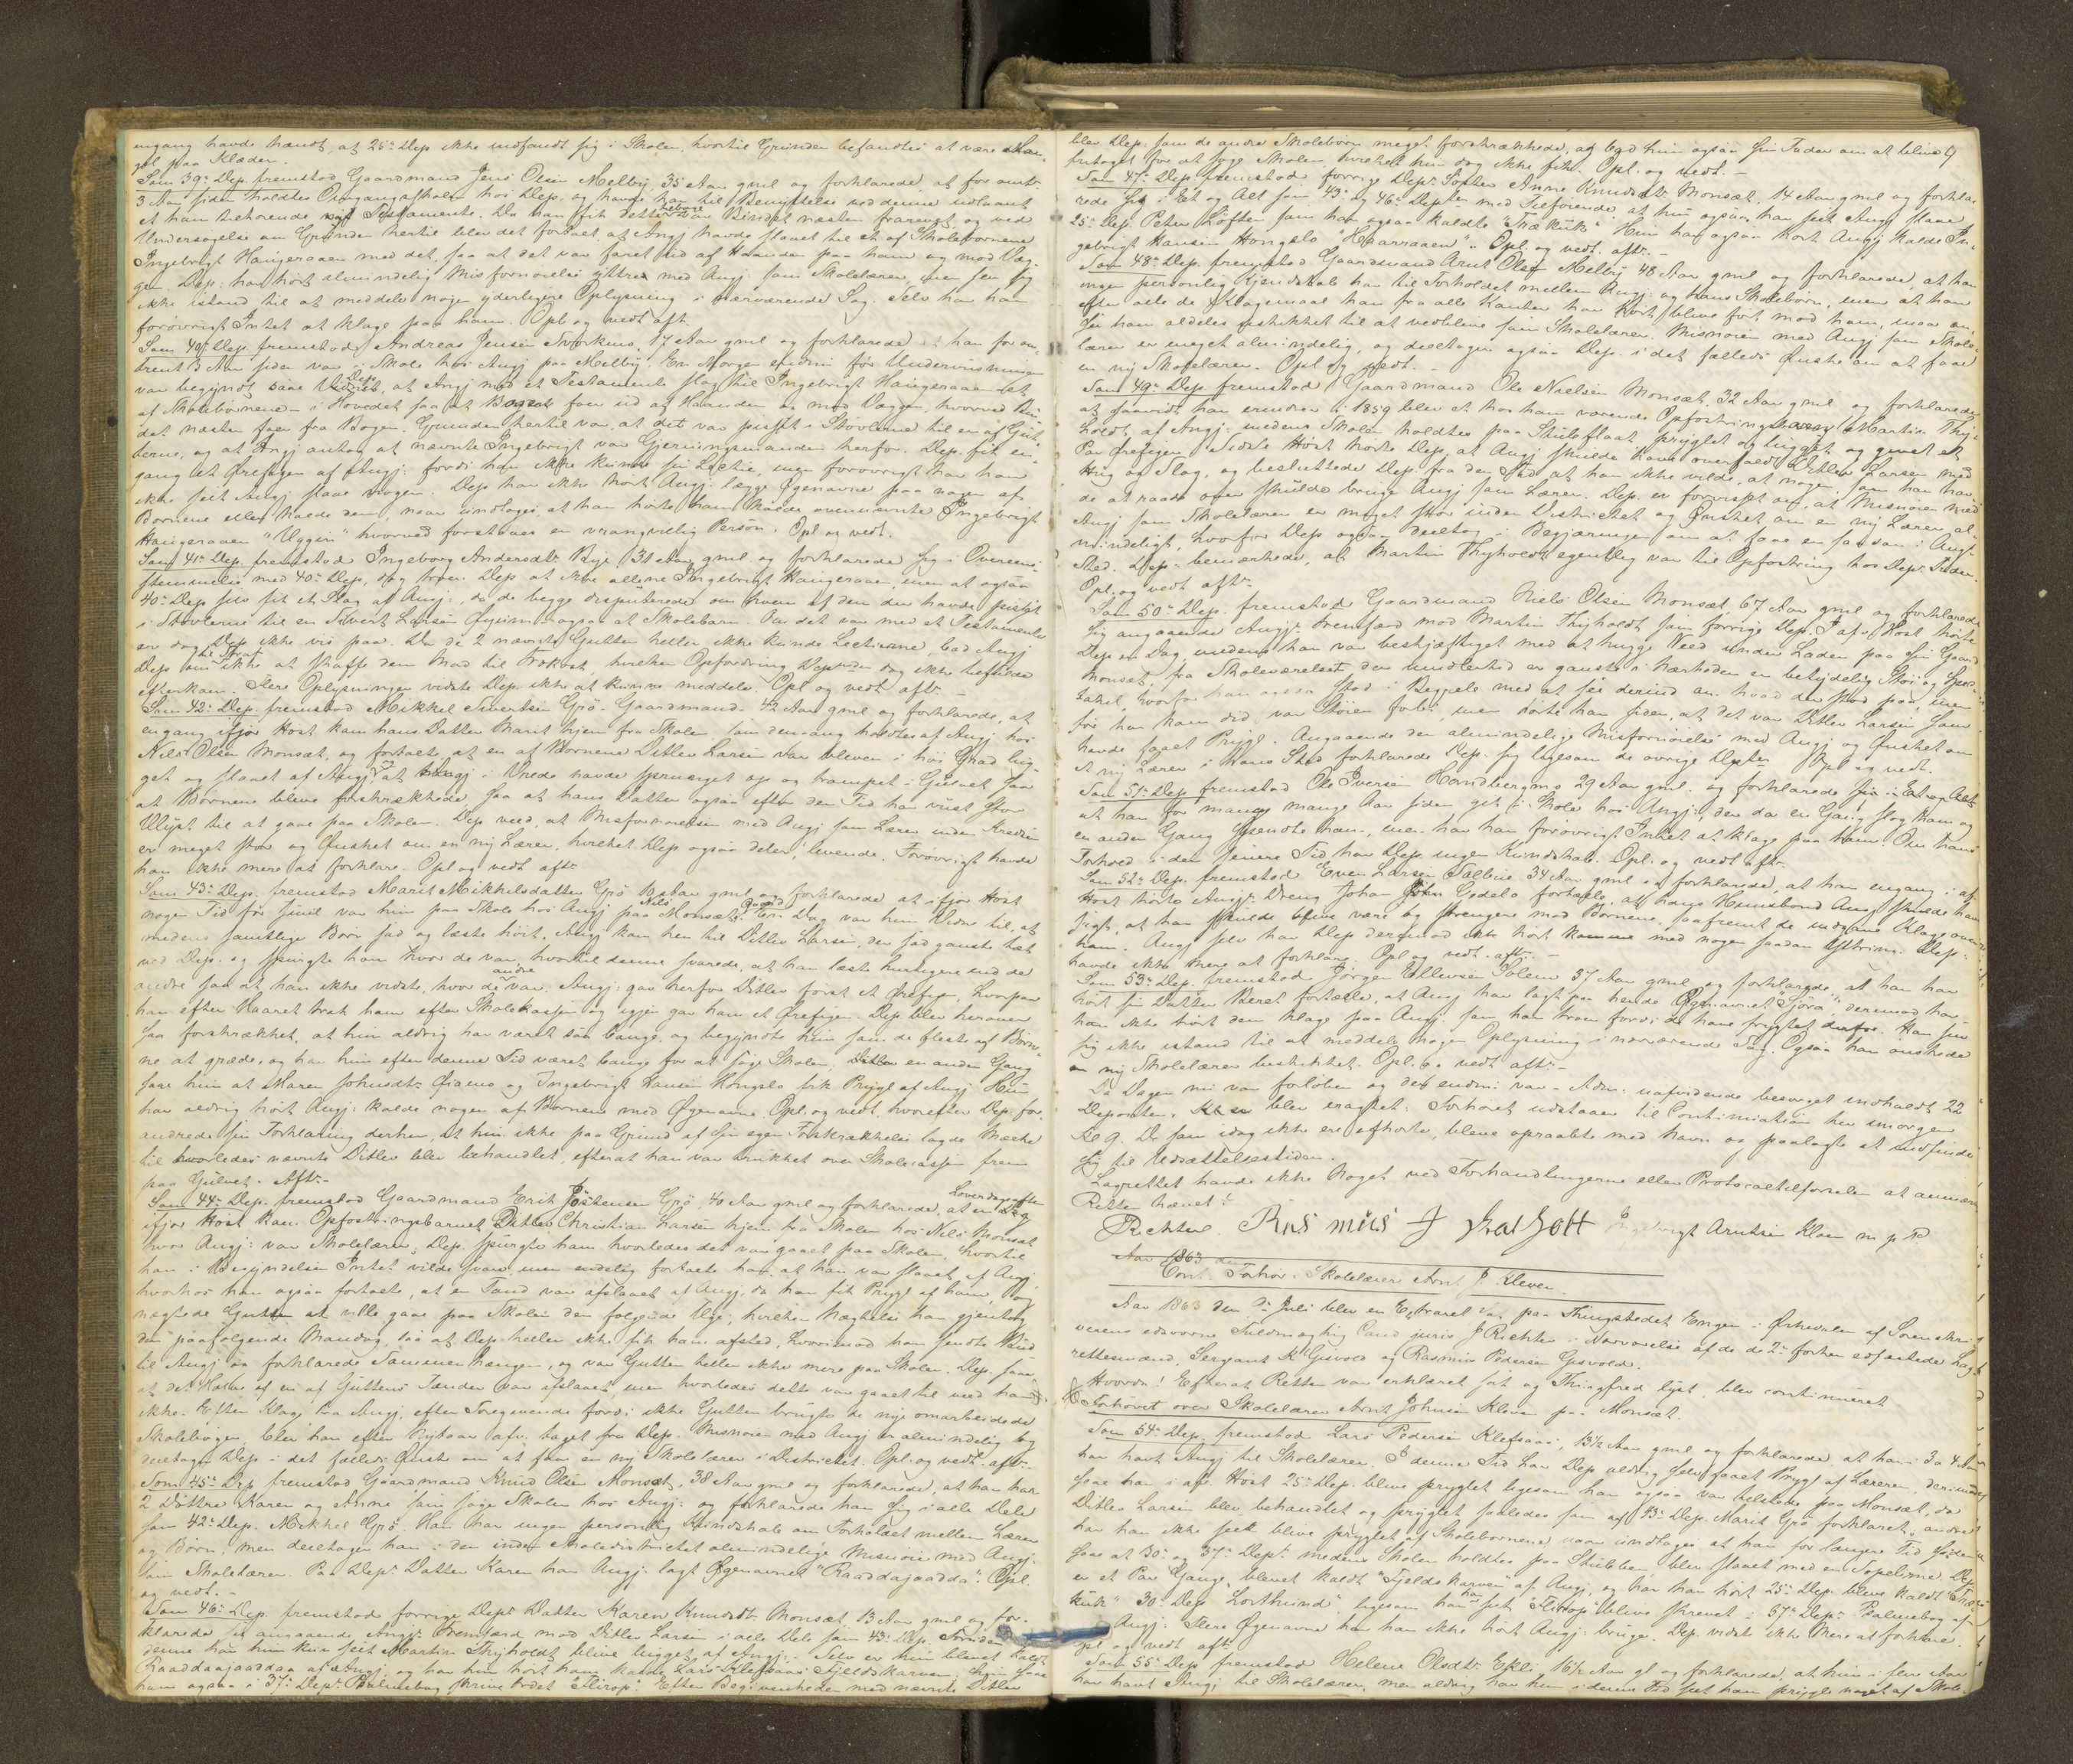 engang havde hændt, at 25de Dep ikke indfandt sig i Skolen, hvortil Grunden befandtes at være Man-
gel paa Klæder.
Som 39de Dep. fremstod Gaardmand Jens Olsen Melby, 35 Aar gml og forklarede, at for omtr.
3 Aar siden holdtes Omgangsskolen hos Dep. og havde han til Benyttelse ved denne udlaant
et ham tilhørende nyt Testamente. Da han fik dette tilbage var Bindet næsten frarevet og ved
Undersøgelse om Grunden hertil blev det fortalt at Angj havde slaaet til et af Skolebørnene
Ingebrigt Haugeraaen med det, saa at det var faret ud af Haanden paa ham og mod Væg-
gen. Dep: har hørt almindelig Misfornøielse yttres med Angj. som Skolelærer, men ser sig
ikke istand til at meddele nogen yderligere Oplysning i nærværende Sag. Selv har han
forøvrigt Intet at klage paa ham. Opl. og vedt. aft.
Som 40de Dep. fremstod Andreas Jensen 17 Aar gml og forklarede at han for om-
trent 3 Aar siden var i Skole hos Angj paa Melby. En Morgen endnu før Undervisningen
var begyndt saae Dep., at Angj med et Testamente slog til Ingebrigt Haugeraaen et
af Skolebørnene i Hovedet saa at Bogen foer ud af Haanden og mod Væggen, hvorved Bin-
det næsten foer fra Bogen. Grunden hertil var, at det var pisset i Støvlerne til en af Gut-
terne, og at Angj antog at nævnte Ingebrigt var Gjerningsmanden herfor. Dep. fik en-
gang et Ørefigen af Angj. fordi han ikke kunde sin Lectie, men forøvrigt har han
ikke seet Angj slaae nogen. Dep har ikke hørt Angj. lægge Øgenavne paa nogen af
Børnene eller kalde dem, naar undtages, at han hørte ham kalde ovennævnte Ingebrigt
Haugeraaen "Uggen" hvorved forstaaes en vrangvillig Person. Opl. og vedt.
Som 41de Dep. fremstod Ingeborg Andersdtr. Rye 31 Aar gml og forklarede sig i Overeens-
stemmelse med 40de Dep. og troer Dep at ikke allene Ingebrigt Haugeraaen, men at ogsaa
40de Dep selv fik et Slag af Angj., da de begge disputerede om hvem af dem der havde pisset
i Støvlerne til en Sivert Larsen ogsaa et Skolebarn. Om det var med et Testamente
er dog Dep ikke vis paa. Da de 2 nævnte Gutter heller ikke kunde Lectierne, bad Angj
Dep om til Straf ikke at skaffe dem Mad til Frokost, hvilken Opfordring Dep dog ikke
efterkom. Flere Oplysninger vidste Dep. ikke at kunne meddele. Opl og vedt aftr. –
Som 42de Dep. fremstod Mikkel Grø. Gaardmand 42 Aar gml og forklarede, at
engang ifjor Høst kom hans Datter Marit hjem fra Skolen, som dengang holdtes af Angj hos
Nils Olsen Monsæt, og fortalte, at en af Børnene Ditlev Larsen var bleven i høi Grad lug-
get og slaaet af Angj, at Angj i Vrede havde sprunget op og trampet i Gulvet saa
at Børnene bleve forskrækkede, saa at hans Datter ogsaa efter den Tid har viist stor
Ulyst til at gaae paa Skolen. Dep. veed, at Misfornøielsen med Angj som Lærer inden Kredsen
er meget stor og Ønsket om en ny Lærer, hvilket Dep ogsaa deler, levende. Forøvrigt havde
han ikke mere at forklare. Opl og vedt aftr
Som 43de Dep. fremstod Marit Mikkelsdatter Grø Aar gml og forklarede at ifjor Høst
nogen Tid før Juul var hun paa Skole hos Angj paa Nils Monsæts Gaard. En Dag var hun Vidne til, at
medens samtlige Børn sad og læste høit, Angj kom hen til Ditlev Larsen, der sad ganske tæt
ved Dep. og spurgte ham hvor de var, hvortil denne svarede, at han læste hurtigere end de
andre saa at han ikke vidste, hvor de andre var. Angj: gav herfor Ditlev først et Ørefigen, hvorpaa
han efter Haaret trak ham efter Skolekassen og igjen gav ham et Ørefigen. Dep blev herover
saa forskrækket, at hun aldrig har været saa bange, og begyndte hun som de fleste af Børne-
ne at græde, og har hun efter denne Tid været bange for at søge Skolen, en anden Gang
saae hun at Maren Johnsdtr. og Ingebrigt Hansen Hongslo fik Prygl af Angj. Hun
har aldrig hørt Angj: kalde nogen af Børnene med Øgenavne. Opl. og vedt. hvorefter Dep. for-
andrede sin Forklaring derhen, at hun ikke paa Grund af sin egen Forskrækkelse lagde Mærke
til hvorledes nævnte Ditlev blev behandlet, efterat han var trukket over Skolecassen frem
paa Gulvet. Aftr. –
Som 44de Dep. fremstod Gaardmand Erik Jostensen Grø, 40 Aar gml og forklarede, at en Løverdag eften
ifjor Høst kom Opfostringsbarnet Ditlev Christian Larsen hjem fra Skolen hos Nils Monsæt
hvor Angj: var Skolelærer; Dep. spurgte ham hvorledes det var gaaet paa Skolen, hvortil
han i Begyndelsen Intet vilde svare, men endelig fortalte han, at han var slaaet af Angj.
hvorhos han ogsaa fortalte, at en Tand var afslaaet af Angj. da han fik Prygl af ham, og
nægtede Gutten at ville gaae paa Skolen den følgende Uge, hvilken Nægtelse han gjentog
den paafølgende Mandag, saa at Dep heller ikke fik ham afsted, hvorimod han sendte Bud
til Angj og forklarede Sammenhængen, og var Gutten heller ikke mere paa Skolen. Dep. saae
at det Halve af en af Guttens Tænder var afslaaet, men hvorledes dette var gaaet til ved han
ikke. Efter Klage fra Angj, efter Foregivende fordi ikke Gutten brugte de nye omarbeidede
Skolebøger, blev han efter Nytaar afv. taget fra Dep. Misnøien med Angj er almindelig og
deeltager Dep i det fælleds Ønske om at faae en ny Skolelærer i Districtet. Opl. og vedt. aftr.
Som 45de Dep fremstod Gaardmand Knud Olsen Monsæt, 38 Aar gml og forklarede, at han har
2 Døttre Karen og Anne som søge Skolen hos Angj: og forklarede han sig i alle Dele
som 42de Dep. Mikkel Grø. Han har ingen personlig Kundskab om Forholdet mellem Lærer
og Børn, men deeltager han i den inden Skoledistrictet almindelige Misnøie med Angj:
som Skolelærer. Paa Deps Datter Karen har Angj: lagt Øgenavnet "Raaddajaadda". Opl.
og vedt. –
Som 46de Dep. fremstod forrige Deps Datter Karen Knudsdtr Monsæt 13 Aar gml og for-
klarede sig angaaende Angjs Fremfærd mod Ditlev Larsen i alle Dele som 43de Dep. Foruden
denne har hun kun seet Martin Thyholdt blive lugget af Angj. Selv er hun blevet kaldt
Raaddaajaaddaa af Angj. og har hun hørt ham kalde Lars Klefsaas Fjeldskarven, ligesom saae
ham ogsaa i 37de Deps Psalmebog skrive Ordet "Slirop". Efter Begivenheden med nævnte Ditlev
blev Dep. som de andre Skolebørn meget forskrækkede, og bad hun ogsaa sin Fader om at blive
fritaget for at søge Skolen, hvilket hun dog ikke fik. Opl. og vedt. –
Som 47de Dep. fremstod forrige Deps Søster Anne Knudsdtr Monsæt, 14 Aar gml og forkla-
rede sig i Et og Alt som 43de og 46de Depter med Tilføiende, at hun ogsaa har seet Angj slaae
25de Dep. Peter Løften som han ogsaa kaldte "Trækuk". Hun har ogsaa hørt Angj kalde In-
gebrigt Hansen Hongslo "Haarraaen". Opl. og vedt. aftr. –
Som 48de Dep. fremstod Gaardmand Arnt Olsen Melby 48 Aar gml og forklarede, at han
ingen personlig Kjendskab har til Forholdet mellem Angj. og hans Skolebørn, men at han
efter alle de Klagemaal han fra alle Kanter har hørt blive ført mod ham, maa an-
see ham aldeles uskikket til at vedblive som Skolelærer. Misnøien med Angj som Skole-
lærer er meget almindelig, og deeltager ogsaa Dep. i det fælleds Ønske om at faae
en ny Skolelærer. Opl og vedt. –
Som 49de Dep. fremstod Gaardmand Ole Nielsen Monsæt, 32 Aar gml og forklarede
at saavidt han erindrer i 1859 blev et hos ham værende Opfostringsbarn Martin Thy-
holdt, af Angj. medens Skolen holdtes paa pryglet og lugget og givet et
Par Ørefigen. Sidste Høst hørte Dep. at Angj skulde have overfaldt Ditlev Larsen med
Hug og Slag, og besluttede Dep. fra den Tid at han ikke vilde, at nogen, som han hav-
de at raade over skulde bruge Angj som Lærer. Dep. er forvisset om, at Misnøien med
Angj som Skolelærer er meget stor inden Districtet og Ønsket om en ny Lærer al-
mindeligt, hvorfor Dep ogsaa deeltog i Begjæringen om at faae en saadan i Angjs
Sted. Dep. bemærkede, at Martin Thyholdt egentlig var til Opfostring hos Deps Fader.
Opl. og vedt aftr.
Som 50de Dep. fremstod Gaardmand Niels Olsen Monsæt, 67 Aar gml og forklarede
sig angaaende Angjs Fremfærd mod Martin Thyholdt som forrige Dep. I afv. Høst hørte
Dep en Dag medens han var beskjæftiget med at hugge Veed under Laden paa sin Gaard
Monsæt, fra Skoleværelset der umiddelbart er ganske i Nærheden en betydelig Støi og Spec-
takel, hvorfor han ogsaa stod i Begreb med at see derind om hvad der stod paa, men
før han kom did var Støien forbi, men hørte han siden, at det var Ditlev Larsen som
havde faaet Prygl. Angaaende den almindelige Misfornøielse med Angj og Ønsket om
et ny Lærer i hans Sted forklarede Dep. sig ligesom de øvrige Depter. Opl og vedt.
Som 51de Dep fremstod Ole Iversen 29 Aar gml. og forklarede sig i Et og Alt
at han for mange mange Aar siden gik i Skole hos Angj., der da en Gang slog ham og
en anden Gang spændte ham, men har han forøvrigt Intet at klage paa ham. Om hans
Forhold i den senere Tid har Dep. ingen Kundskab. Opl. og vedt aftr.
Som 52de Dep. fremstod Even Larsen 34 Aar gml og forklarede, at han engang i afv.
Høst hørte Angjs. Dreng Johan fortælle, at hans Huusbond Angj skulde have
sagt, at han skulde blive værre og strengere mod Børnene, saafremt de indgave Klage over
ham. Angj selv har Dep derimod ikke hørt komme med nogen saadan Yttring. Dep.
havde ikke mere at forklare. Opl og vedt. aftr. –
Som 53de Dep. fremstod Jørgen Ellevsen Solem 37 Aar gml og forklarede, at han har
hørt sin Datter Beret fortælle, at Angj har lagt paa hende Øgenavnet "Sjøraa", derimod har
han ikke hørt dem klage paa Angj. som han troer fordi de have frygtet derfor. Han seer
sig ikke istand til at meddele nogen Oplysning i nærværende Sag. Ogsaa han ønskede
en ny Skolelærer beskikket. Opl. og vedt aftr. –
Da Dagen nu var forløben og der endnu var Adm. uafvidende besørget indkaldt 22
Deponenter, blev eragtet: Forhøret udstaaer til Continuation her imorgen
Kl 9. De som idag ikke ere afhørte, bleve opraabte med Navn og paalagte at indfinde
sig til Udsættelsestiden.
Lagrettet havde ikke Noget ved Forhandlingerne eller Protocoltilførselen at anmærke
Retten hævet
Richter. Ingebrigt Arntsen Kloen m p P
Aar 1863 den
Cont. Forhør. Skolelærer Arnt J. Kleven.
Aar 1863 den Juli blev en Extraret sat paa Thingstedet Engen i Ørkedalen af Sorenskri-
verens edsvorne Fuldmægtig Cand juris J Richter i Nærværelse af de de 2de forhen edfæstede Lag-
rettesmænd, Sergeant K Gisvold og Rasmus Pedersen Gisvold.
Hvorda! Efterat Retten var erklæret sat og Thingfred lyst, blev continueret
Forhøret over Skolelærer Arnt Johnsen Kleven paa Monsæt.
Som 54de Dep. fremstod Lars Pedersen Klefsaas, 13½ Aar gml og forklarede, at han i 3 a 4 Aar
har havt Angj til Skolelærer. I denne Tid har Dep aldrig selv faaet Prygl af Læreren, derimod
saae han i afv. Høst 25de Dep. blive pryglet ligesom han ogsaa var tilstede paa Monsæt, da
Ditlev Larsen blev behandlet og pryglet saaledes som af 43de Dep. Marit Grø forklaret; andre
har han ikke seet blive pryglet af Skolebørnene, naar undtages at han for længere Tid siden
saae at 30te og 37te Dept. medens Skolen holdtes paa Stubben, blev slaaet med en Sopelime. Dep.
er et Par Gange blevet kaldt "Fjeldskarven" af Angj, og har han hørt 25de Dep. blive kaldt "Træ-
kuk" 30te Dep Lorthund", ligesom han har seet "Slirop" blive skrevet i 37te Deps Psalmebog af
Angj: Flere Øgenavne har han ikke hørt Angj: bruge. Dep. vidste ikke Mere at forklare.
Opl og vedt aftr.
Som 55de Dep fremstod Helene Olsdtr. Ekli 16½ Aar gl og forklarede, at hun i flere Aar
har havt Angj til Skolelærer, men aldrig har hun i denne Tid seet ham prygle noget af Skole-